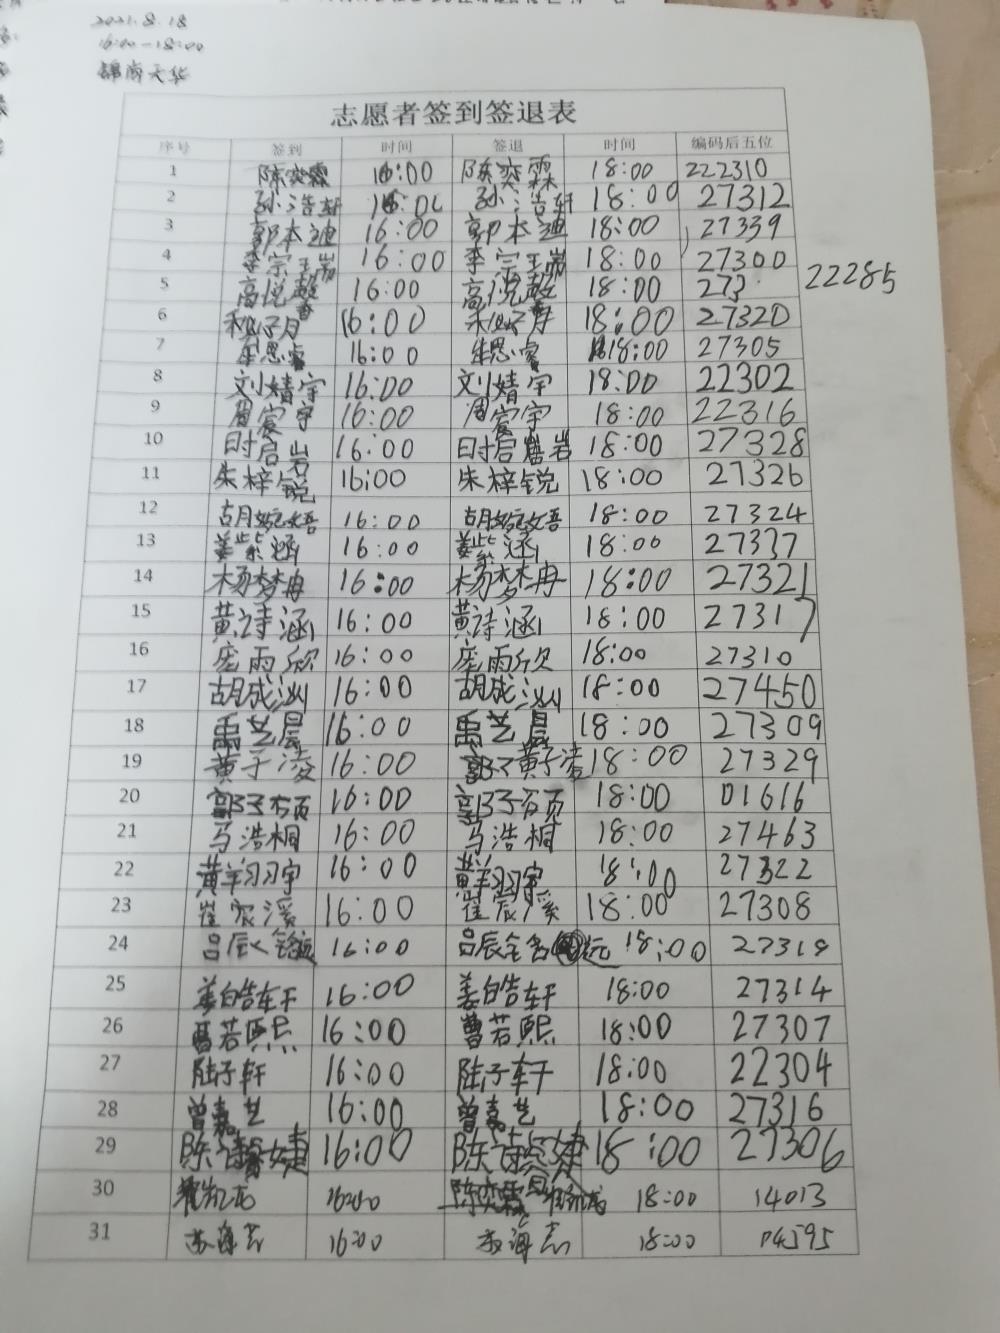 2021.8.18
16:00-18:00
锦尚天华
志愿者签到签退表
序号 签到 时间 签退 时间 编码后五位
1 陈奕霖 16:00 陈奕霖 18:00 222310
2 孙浩轩 16:00 孙浩轩 18:00 27312
3 郭本迪 16:00 郭本迪 18:00 27339
4 李宗玉 16:00 李宗玉 18:00 27300
5 高悦馨 16:00 高悦馨 18:00 273 22285
6 16:00 18:00 27320
7 思睿 16:00 思睿 18:00 27305
8 刘婧宇 16:00 刘婧宇 18:00 22302
9 周宸宇 16:00 周宸宇 18:00 22316
10 时启岩 16:00 时启岩 18:00 27328
11 朱梓锐 16:00 朱梓锐 18:00 27326
12 胡婉语 16:00 胡婉语 18:00 27324
13 姜紫涵 16:00 姜紫涵 18:00 27337
14 杨梦冉 16:00 杨梦冉 18:00 27321
15 黄诗涵 16:00 黄诗涵 18:00 27317
16 庞雨欣 16:00 庞雨欣 18:00 27310
17 胡成汕 16:00 胡成汕 18:00 27450
18 禹艺晨 16:00 禹艺晨 18:00 27309
19 黄子凌 16:00 黄子凌 18:00 27329
20 郭子颀 16:00 郭子颀 18:00 01616
21 马浩桐 16:00 马浩桐 18:00 27463
22 黄翔宇 16:00 黄翔宇 18:00 27322
23 崔宸溪 16:00 崔宸溪 18:00 27308
24 吕辰 16:00 吕辰 18:00 27318
25 姜皓轩 16:00 姜皓轩 18:00 27314
26 曹若熙 16:00 曹若熙 18:00 27307
27 陆子轩 16:00 陆子轩 18:00 22304
28 曾嘉艺 16:00 曾嘉艺 18:00 27316
29 陈婕 16:00 陈婕 18:00 27306
30 16:00 18:00 14013
31 苏海志 16:00 苏海志 18:00 04595